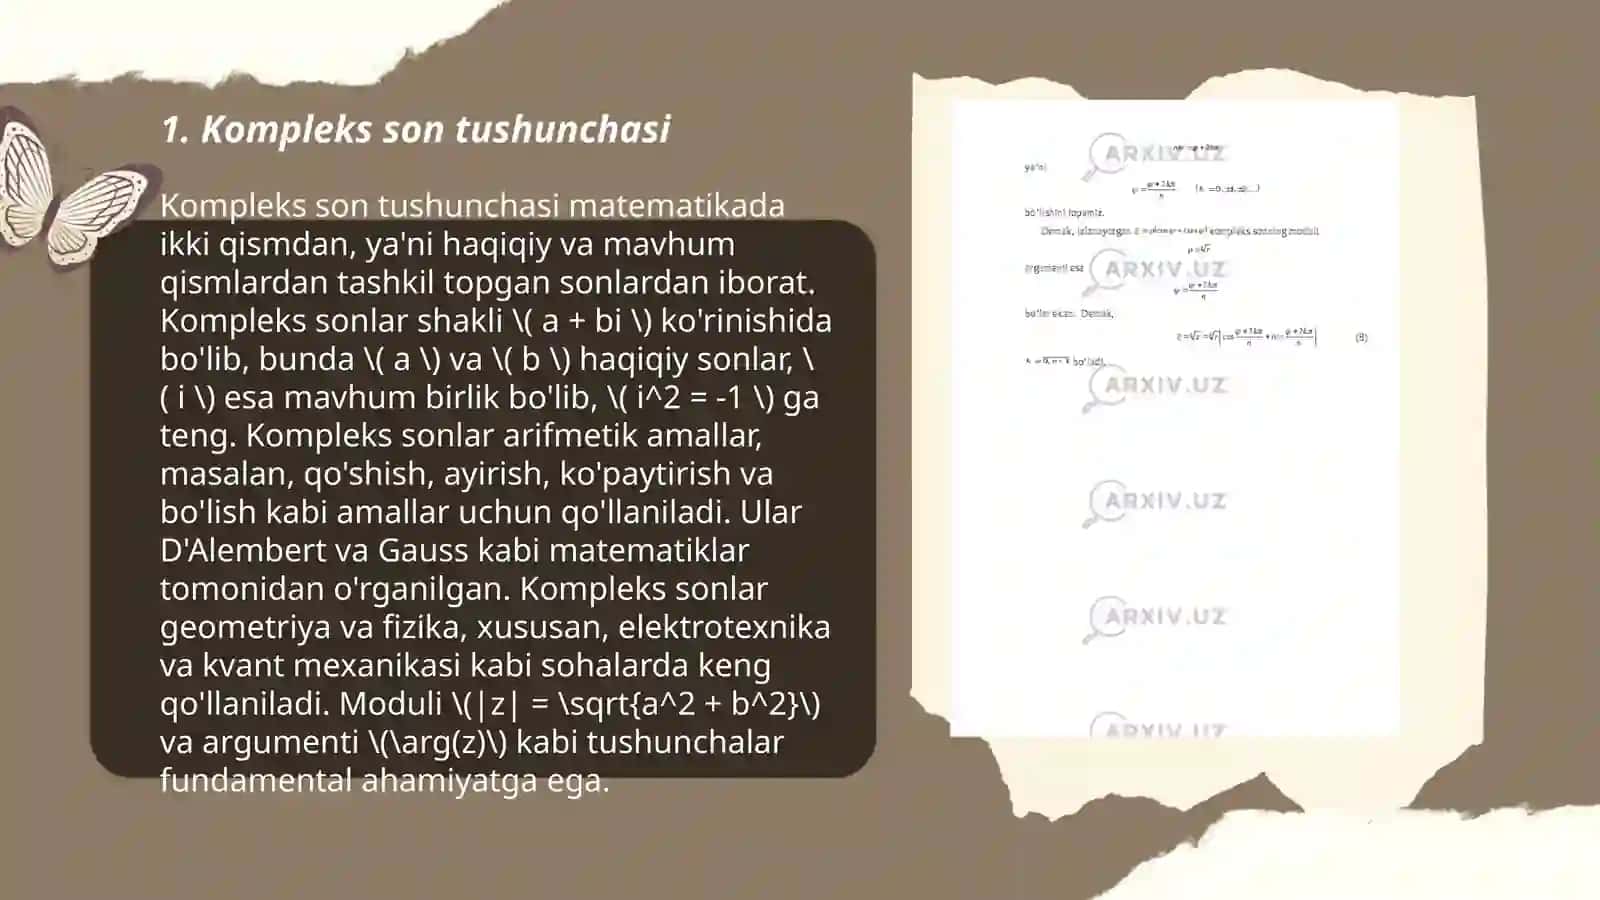 1. Kompleks son tushunchasi
Kompleks son tushunchasi matematikada
ikki qismdan, ya'ni haqiqiy va mavhum
qismlardan tashkil topgan sonlardan iborat.
Kompleks sonlar shakli \( a + bi \) ko'rinishida
bo'lib, bunda \( a \) va \( b \) haqiqiy sonlar, \
( i \) esa mavhum birlik bo'lib, \( i^2 = -1 \) ga
teng. Kompleks sonlar arifmetik amallar,
masalan, qo'shish, ayirish, ko'paytirish va
bo'lish kabi amallar uchun qo'llaniladi. Ular
D'Alembert va Gauss kabi matematiklar
tomonidan o'rganilgan. Kompleks sonlar
geometriya va fizika, xususan, elektrotexnika
va kvant mexanikasi kabi sohalarda keng
qo'llaniladi. Moduli \(|z| = \sqrt{a^2 + b^2}\)
va argumenti \(\arg(z)\) kabi tushunchalar
fundamental ahamiyatga ega.
ARXIV.UZ
ya'ni
bo'lishini topamiz.
Demak, izlanayotgan kompleks sonning moduli
argumenti esa
ARXIV.UZ
bo'lar ekan. Demak,
(8)
bo'ladi.
ARXIV.UZ
ARXIV.UZ
ARXIV.UZ
ARXIV.UZ